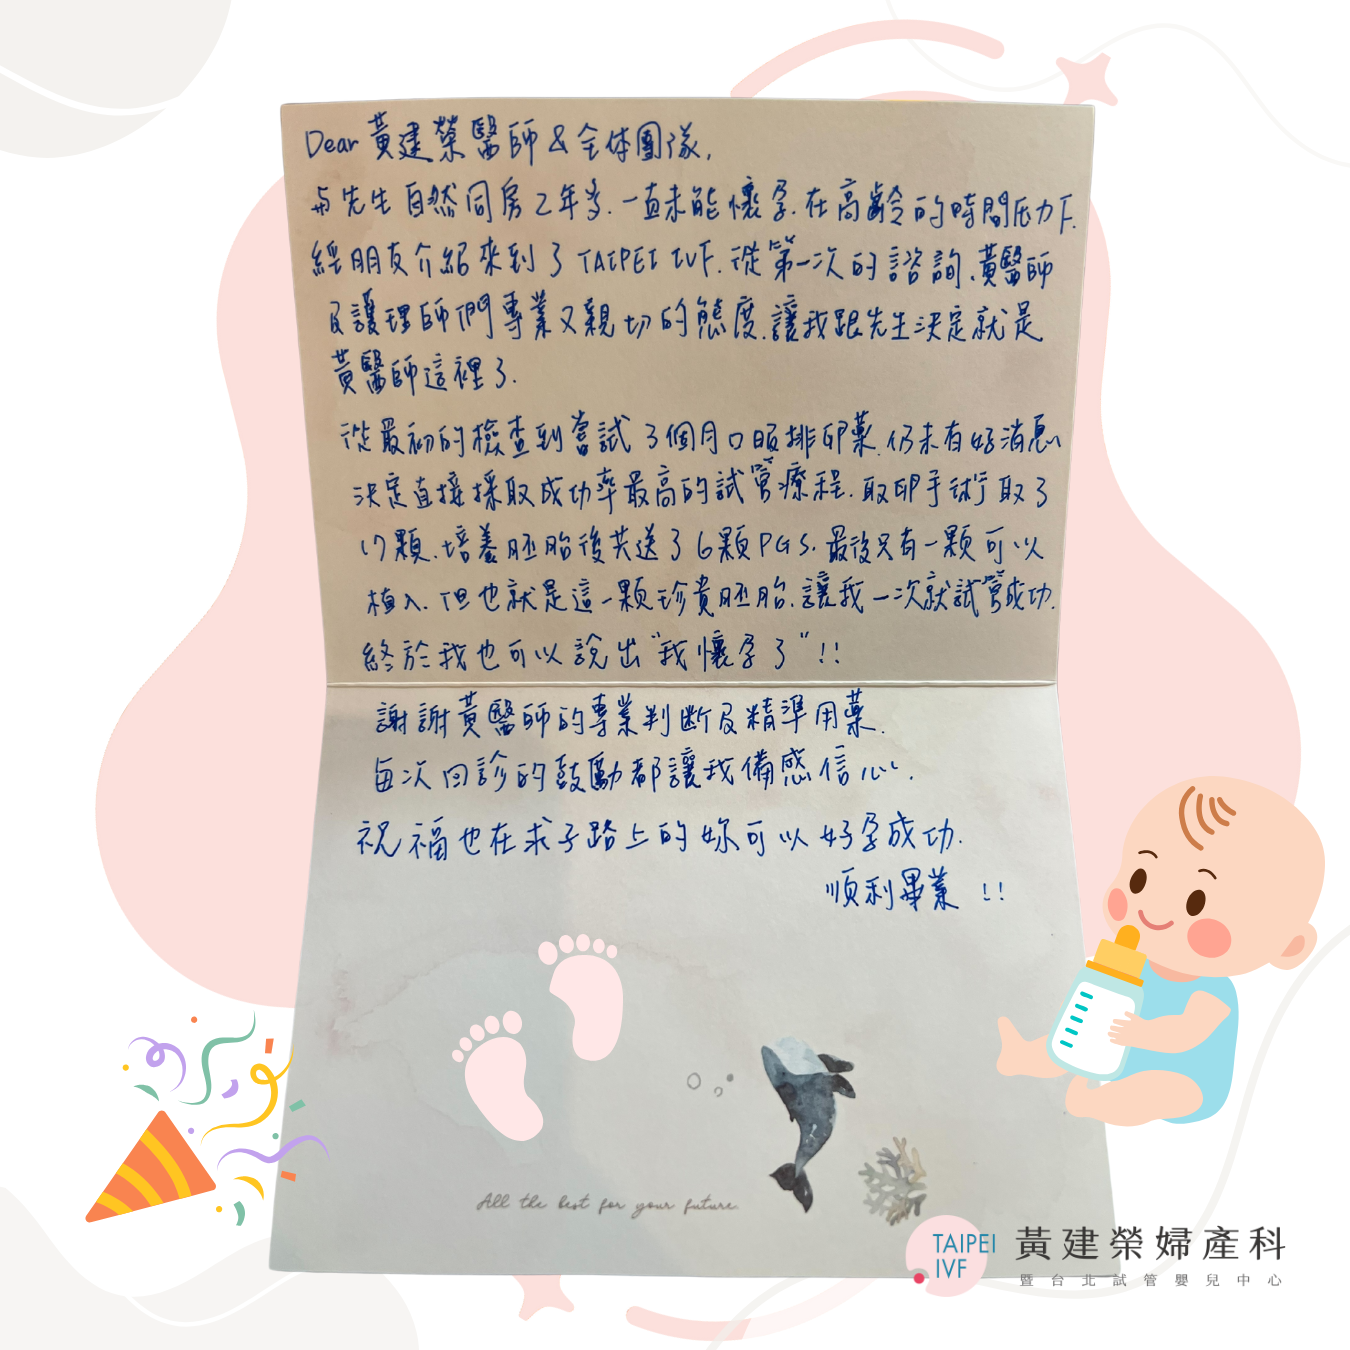 Dear 黃建榮醫師 & 全体團隊,
與先生自然同房2年多.一直未能懷孕.在高齡的時間压力下.
經朋友介紹來到了 TAIPEI IVF.從第一次的諮詢、黃醫師
及護理師們專業又親切的態度.讓我跟先生決定就是
黃醫師這裡了.
從最初的檢查到嘗試了3個月口服排卵藥.仍未有好消息
決定直接採取成功率最高的試管療程.取卵手術取了
17顆.培養胚胎後共送了6顆PGS.最後只有一顆可以
植入.但也就是這一顆珍貴胚胎.讓我一次就試管成功.
終於我也可以說出"我懷孕了"!!
謝謝黃醫師的專業判斷及精準用藥.
每次回診的鼓勵都讓我備感信心.
祝福也在求子路上的妳可以好孕成功.
順利畢業 !!
All the best for your future.
TAIPEI IVF
黃建榮婦產科
暨台北試管嬰兒中心